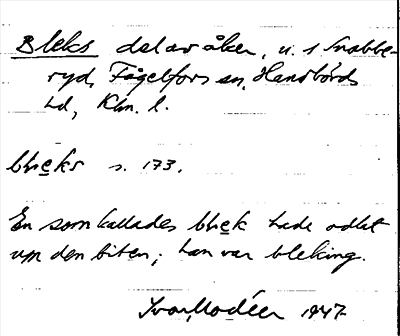 Bleks del av åker, u. 1 Snabbe-
ryd, Fågelfors sn, Handbörds
hd, Klm. l.
blreks s. 173.
En som kallades blrek hade odlat
upp den biten; han var bleking.
Ivar Modéer 1947